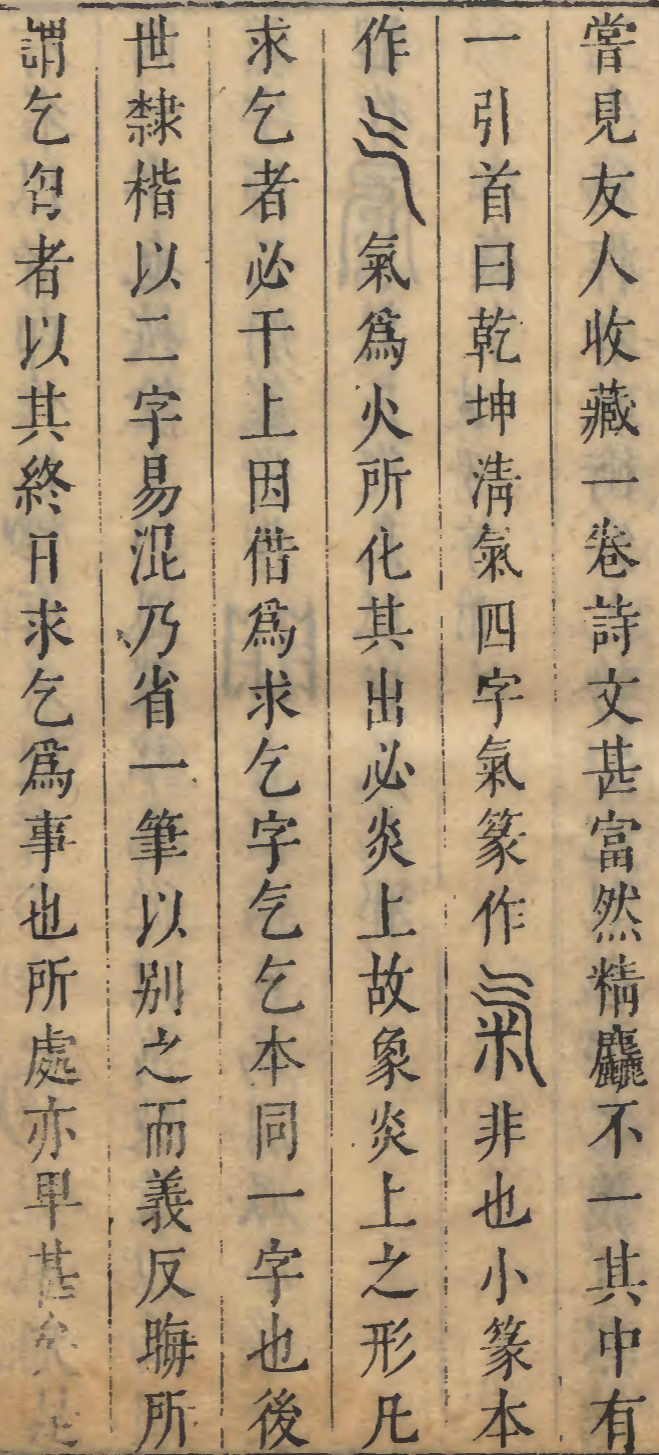 嘗見友人收藏一卷詩文甚富然精麤不一其中有
一引首曰乾坤淸氣四字氣篆作氣非也小篆本
作气氣爲火所化其出必炎上故象炎上之形凡
求乞者必干上因借爲求乞字气乞本同一字也後
世隸楷以二字易混乃省一筆以别之而義反晦所
謂乞匄者以其終日求乞爲事也所處亦卑甚矣